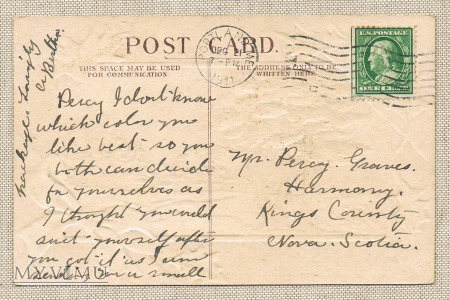 POST CARD.
THIS SPACE MAY BE USED
FOR CORRESPONDENCE
THE ADDRESS ONLY TO BE
WRITTEN HERE.
PORTLAND, ME.
DEC 21
7-PM
1911
U.S. POSTAGE
ONE
Percy I don't know
which color you
like best - so you
both can decide
for yourselves as
I thought you could
suit yourself after
you got it as I am
sending you a small
package
Mr. Percy Graves.
Harmony.
Kings County
Nova. Scotia.
MYVIMU